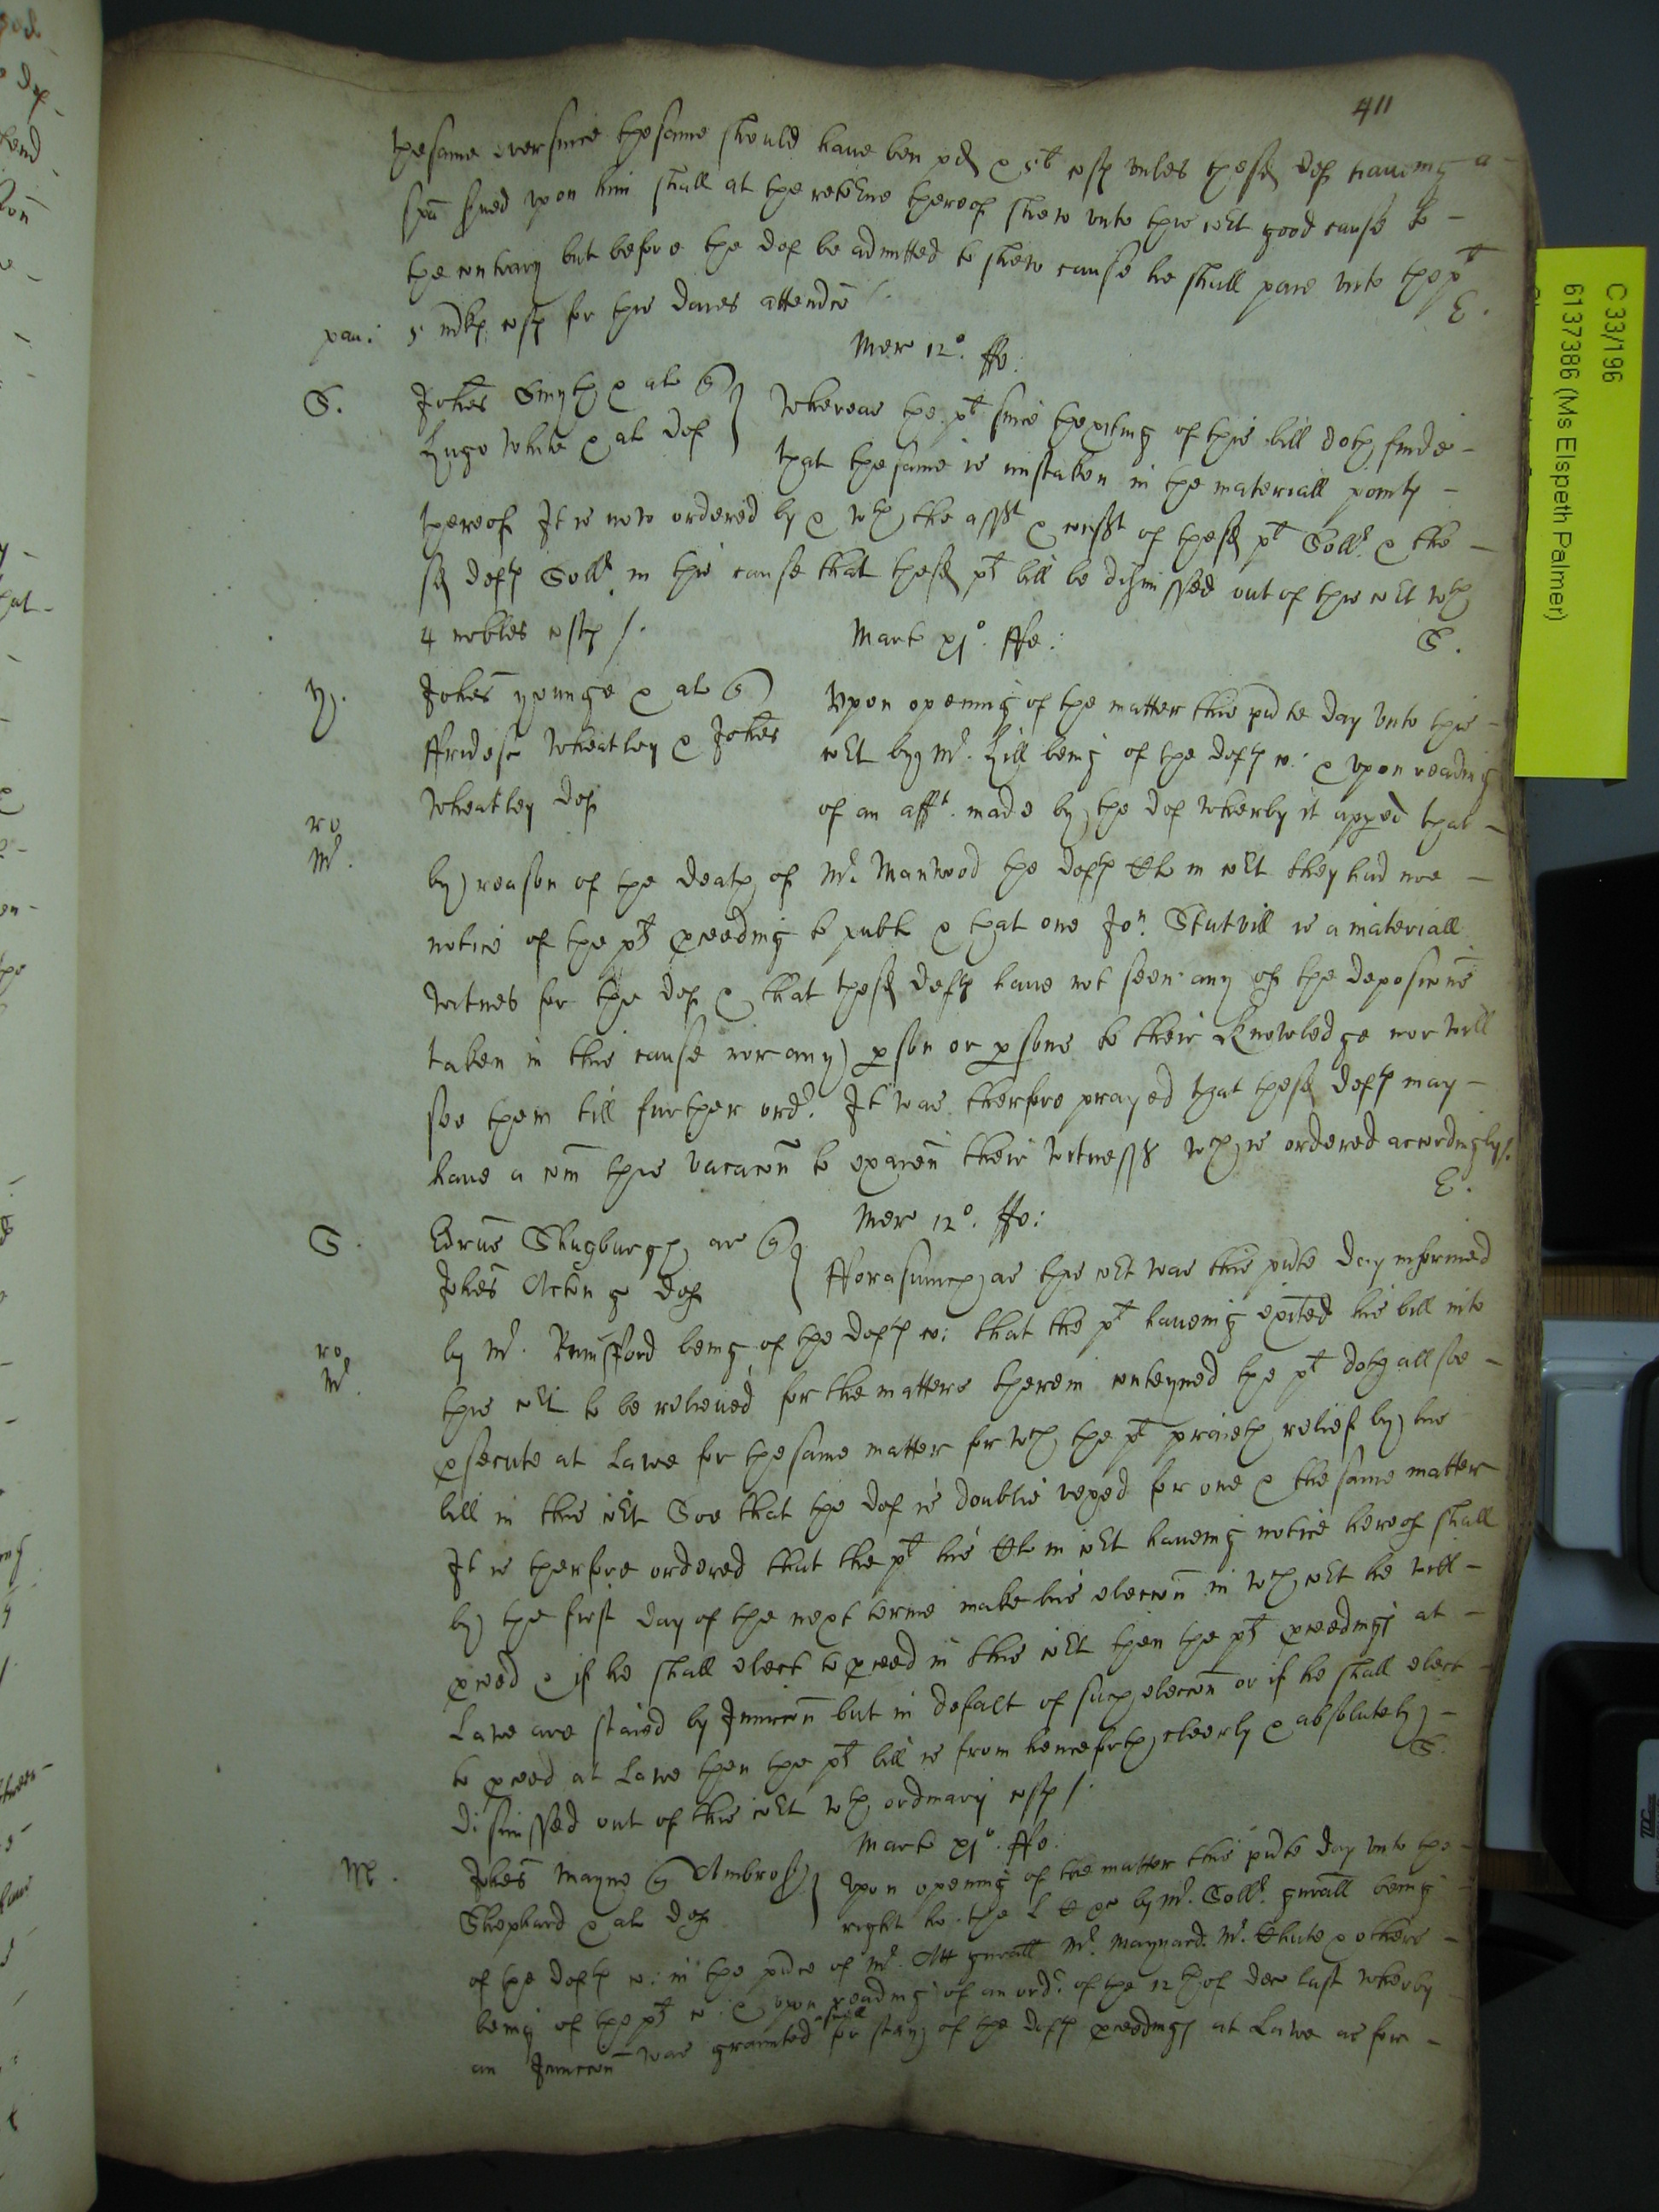 411
the same ever since the same should have ben pd & 5li costs unles the sd def haveing a
spa served upon him shall at the retorne thereof shew unto this Cort good cause to
the contrary but before the def be admitted to shew cause he shall paie unto the plt
pau: 5 costs for this daies attendce
E.
Mer 12o. ffe:
S. Johes Smyth & al
Hugo White & al def
Whereas the plt since the exiting of this bill doth finde
that the same is mistaken in the materiall points
thereof It is now ordered by & wth the asst & consst of the sd plt Sollr & the
sd defts Sollr in this cause that the sd plts bill be dismissed out of this Cort wth
4 nobles costs /.
S.
Marts xjo. ffe:
Y. Johes Younge & al
ffridesc Wheatley & Johes
Wheatley def
Upon opening of the matter this pnte day unto this
Cort by Mr. Hill being of the defts co: & upon reading
of an afft. made by the def wherby it appeed that
ro
Mr.
by reason of the death of Mr. Manwood the defts Atto in Cort they had noe
notice of the plts pceeding to publ & that one Jon. Stutvill is a materiall
witnes for the def & that the sd defts have not seen any of the deposicons
taken in this cause nor any pson or psons to their knowledge nor will
see them till further ordr. It was therfore prayed that the sd defts may
have a com this vacacon to examen their witnesses wch is ordered accordingly /.
E.
Mer 12o. ffe:
S. Edrus Shugburgh ar
Johes Acton g def
fforasmuch as this Cort was this pnte day informed
ro
Mr.
by Mr. being of the defts co: that the plt haveing exited his bill into
this Cort to be relieved for the matters therein conteyned the plt doth allsoe
psecute at Lawe for the same matter for wch the plt praieth relief by his
bill in this Cort Soe that the def is doublie vexed for one & the same matter
It is therfore ordered that the plt his Atto in Cort haveing notice hereof shall
by the first day of the next terme make his eleccon in wch Cort he will
pceed & if he shall elect to pceed in this Cort then the plts pceedings at
Lawe are staied by Iniuccon but in defalt of such eleccon or if he shall elect
to pceed at Lawe then the plts bill is from henceforth cleerly & absolutely
dismissed out of this Cort wth ordinary costs /.
S.
Marts xjo. ffe:
M. Johes Mayne Ambros
Shephard & al def
Upon opening of the matter this pnte day unto the
right ho: the L by Mr. Sollr. gnrall being
of the defts co: in the pnce of Mr. Att gnrall Mr. Maynard. Mr. Chute & others
being of the plts co: & upon reading of an ordr. of the 12th of Dec last wherby
an Iniuccon was graunted aswell for stay of the defts pceedings at Lawe as for
C 33/196
6137386 (Ms Elspeth Palmer)